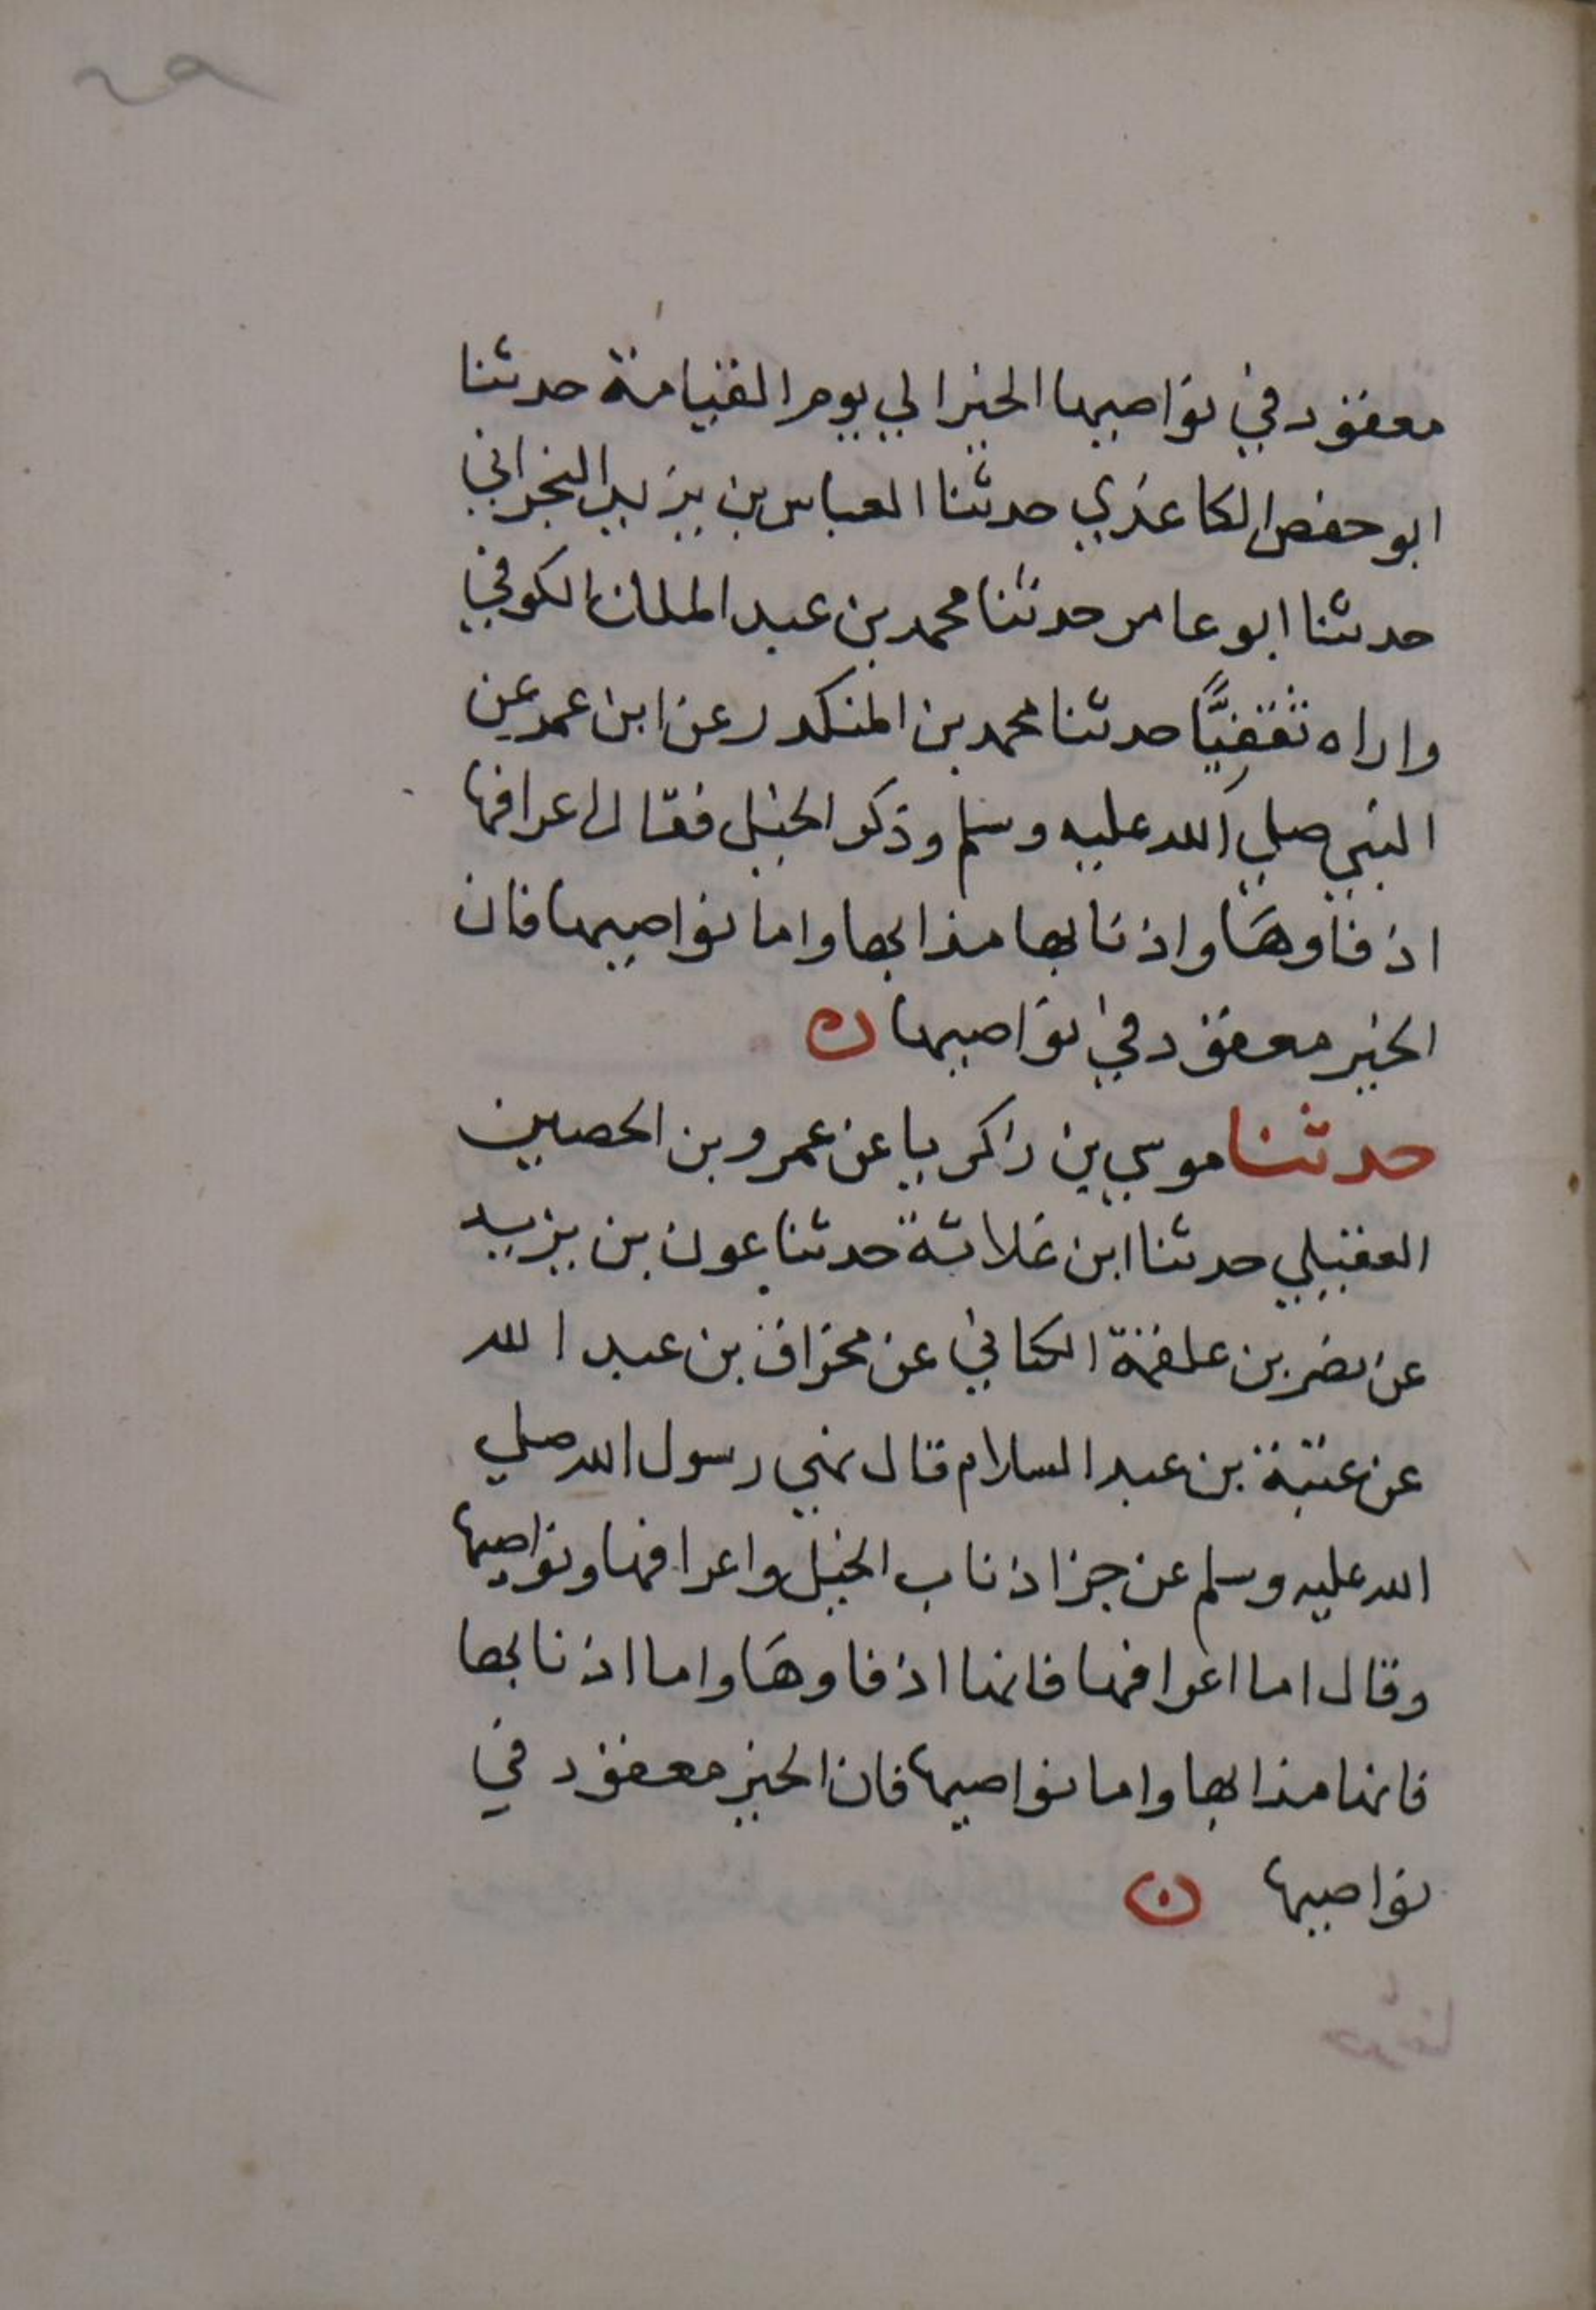 ٢٩
معقود في نواصيها الخير الي يوم القيامة حدثنا
ابو حفص الكاغذي حدثنا العباس بن يزيد النجراني
حدثنا ابو عامر حدثنا محمد بن عبد الملك الكوفي
واراه ثقفيًّا حدثنا محمد بن المنكدر عن ابن عمر عن
النبي صلي الله عليه وسلم وذكر الخيل فقال اعرافها
اذفاوها واذنابها مذابها واما نواصيها فان
الخير معقود في نواصيها ن
حدثنا موسي بن زاكريا عن عمرو بن الحصين
العقيلي حدثنا ابن علاثة حدثنا عون بن يزيد
عن نصر بن علقمة الكناني عن مخراق بن عبد الله
عن عتبة بن عبد السلام قال نهي رسول الله صلي
الله عليه وسلم عن جز اذناب الخيل واعرافها ونواصيها
وقال اما اعرافها فانها اذفاوها واما اذنابها
فانها مذابها واما نواصيها فان الخير معقود في
نواصيها ن